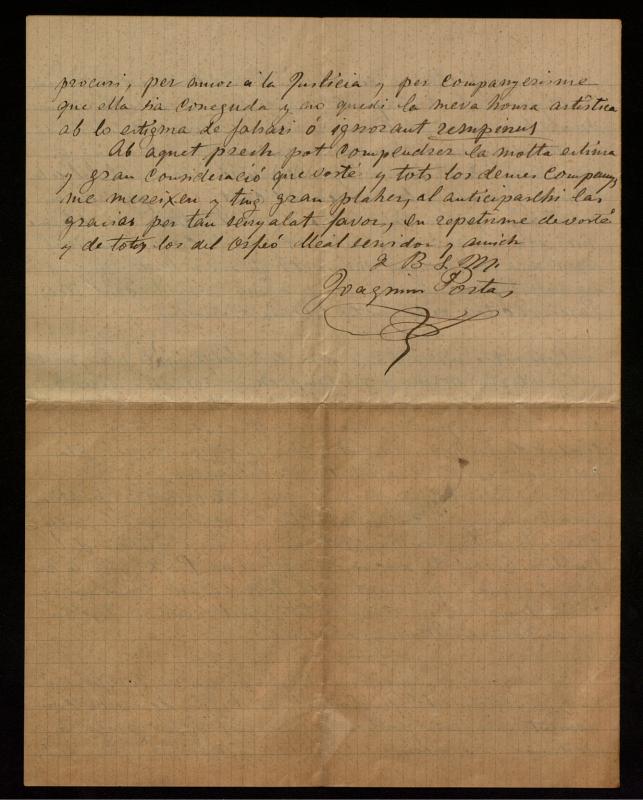 procuri, per amor á la Justicia y per companyerisme
que ella sia coneguda y no quedi la meva honra artística
ab lo estigma de falsari ó ignorant
Ab aquet prech pot compendrer la molta estima
y gran consideració que vosté y tots los demes companys
me mereixen y tinc gran plaher, al anticiparshi las
gracias per tan senyalat favor, en repetirme de vosté
y de tots los del Orfeó lleal servidor y amich
B S M.
Joaquim Portas